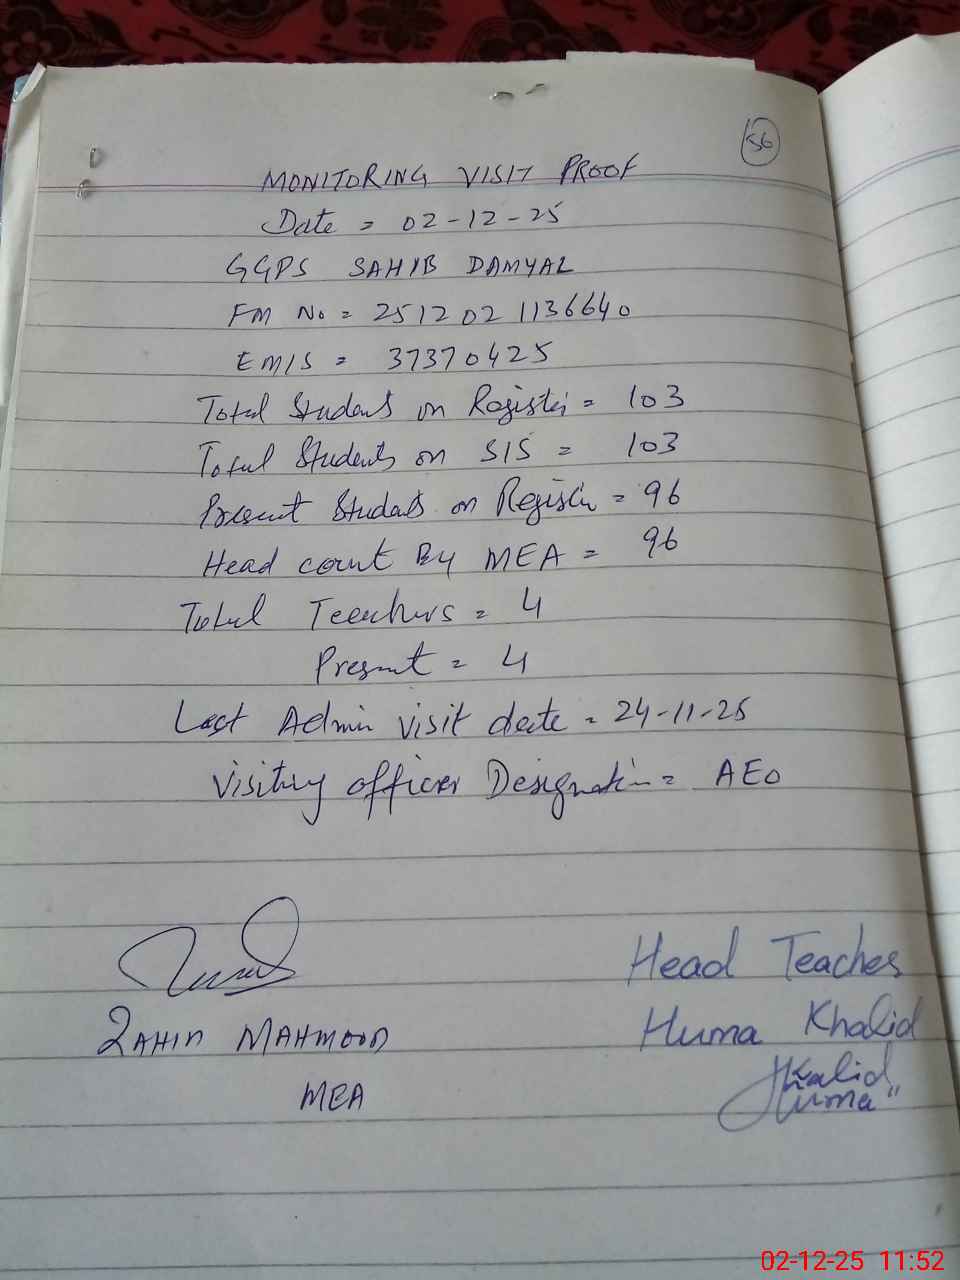 56
MONITORING VISIT PROOF
Date = 02-12-25
GGPS SAHIB DAMYAL
FM No = 251202 1136640
EMIS = 37370425
Total Students on Register = 103
Total Students on SIS = 103
Present Students on Register = 96
Head count By MEA = 96
Total Teachers = 4
Present = 4
Last Admin visit date = 24-11-25
Visiting officer Designation = AEO
Head Teacher
ZAHID MAHMOOD
Huma Khalid
MEA
Khalid
Huma"
02-12-25 11:52